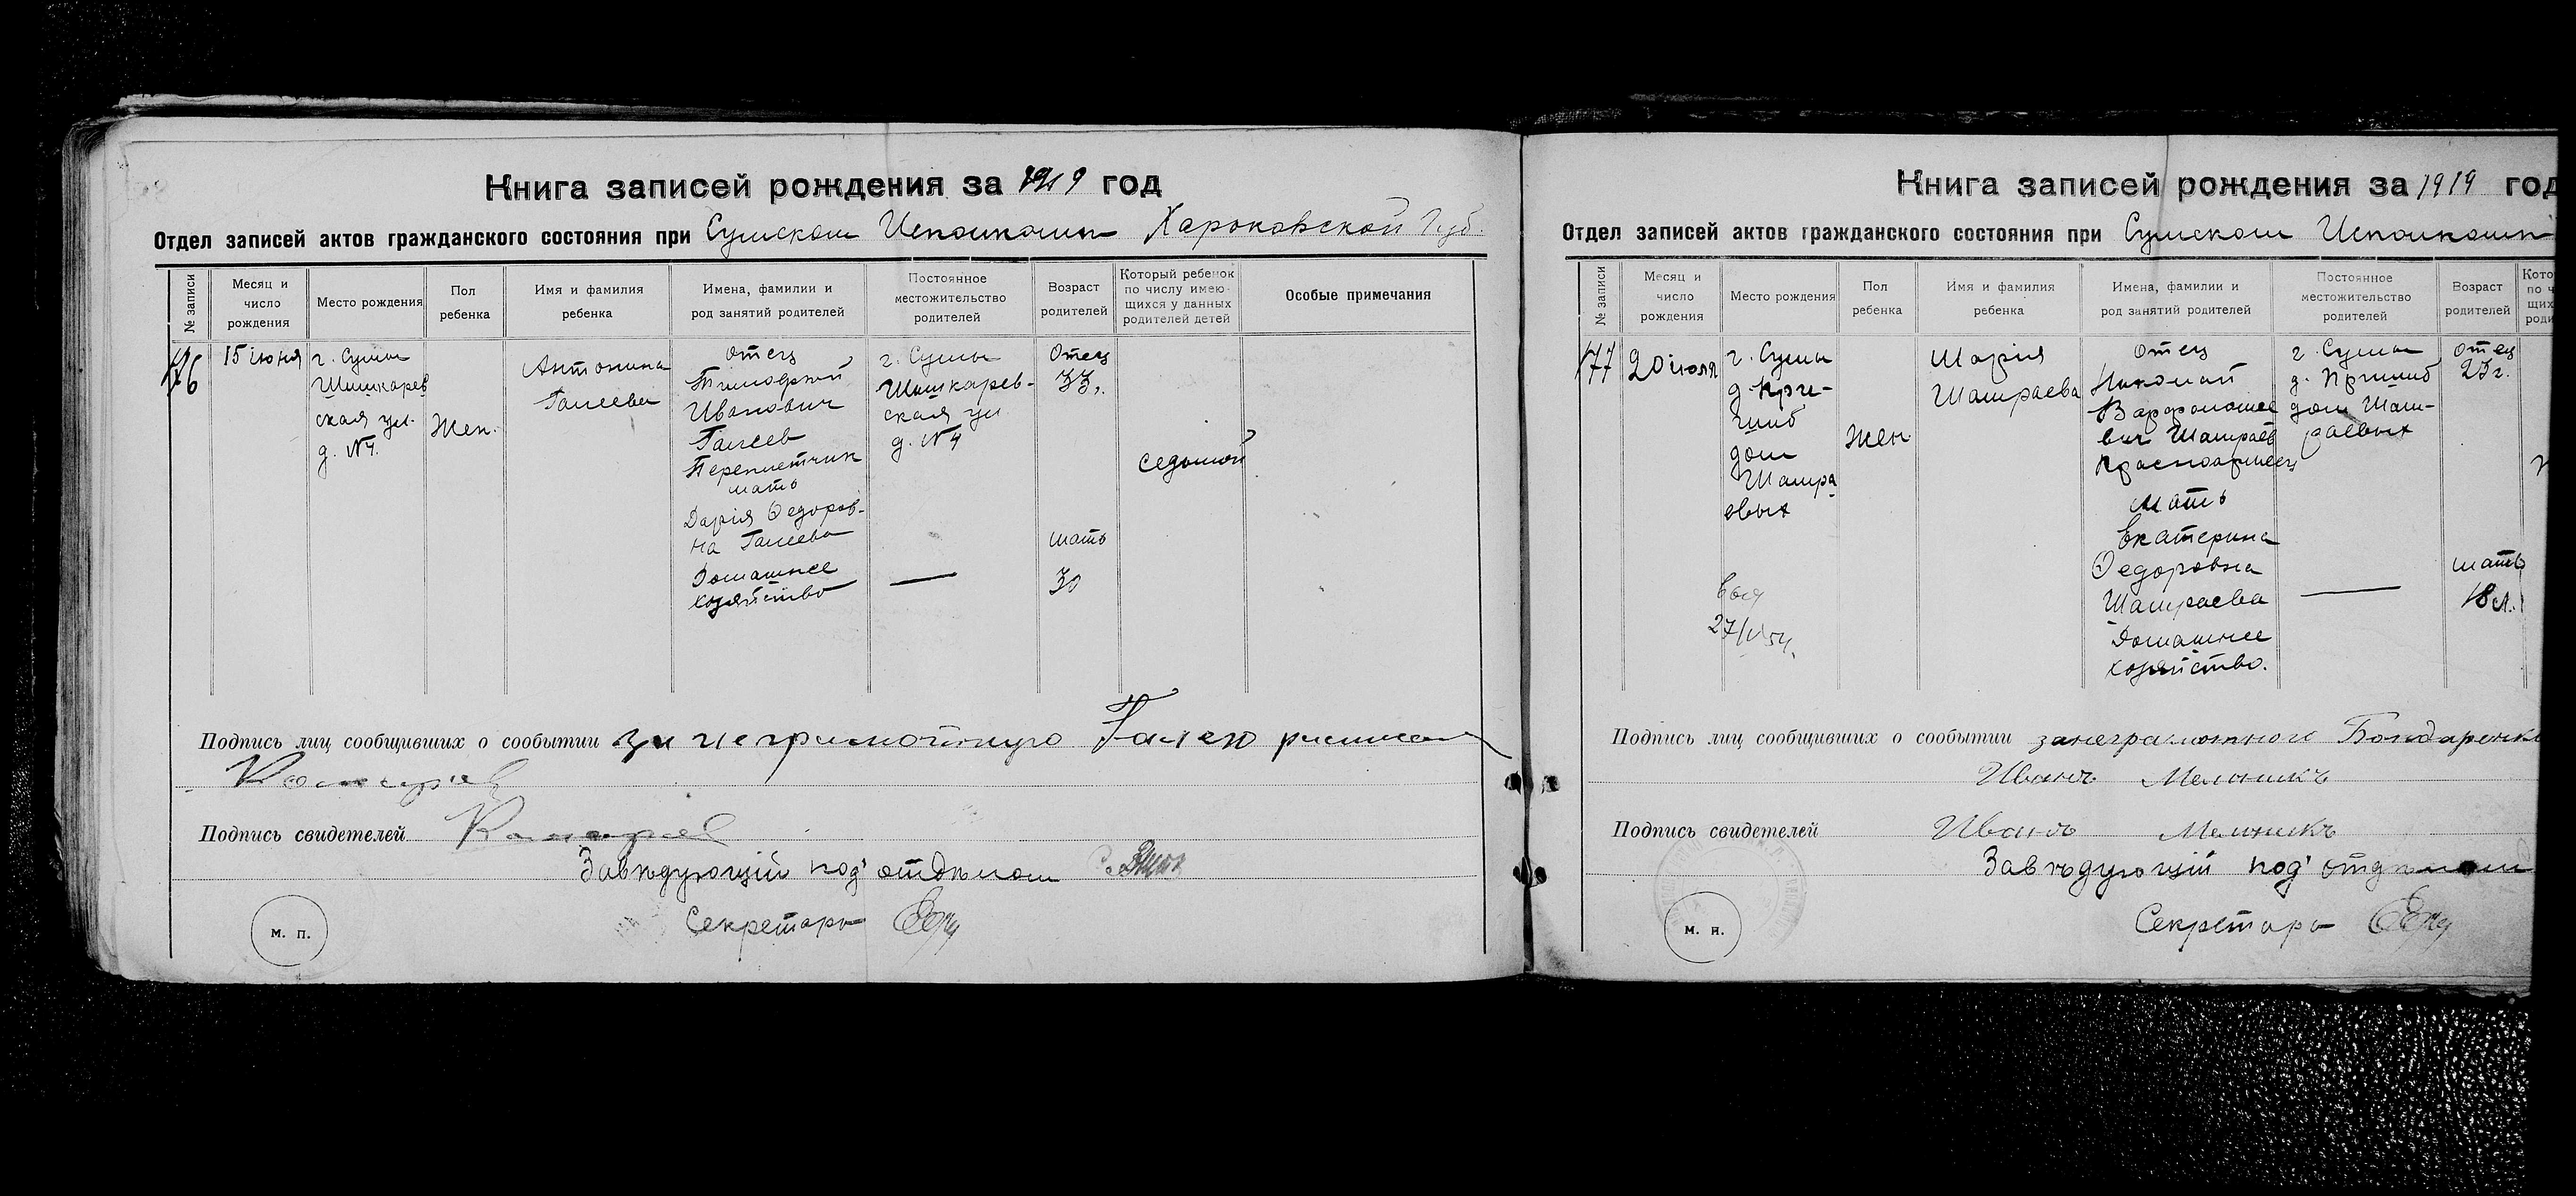 Книга записей рождения за 1919 год
Отдел записей актов гражданского состояния при Сумском Исполкоми Харьковской Губ.
№ записи
Месяц и число рождения
Место рождения
Пол ребенка
Имя и фамилия ребенка
Имена, фамилии и род занятий родителей
Постоянное местожительство родителей
Возраст родителей
Который ребенок по числу имеющихся у данных родителей детей
Особые примечания
76
15 июня
г. Сумы
Шишкарев
ская ул.
д. №4.
Жен.
Антонина
Галеева
отец
Тимофей
Иванович
Галеев
Переплетчик
мать
Дарія Федоров-
на Галеева
Домашнее
хозяйство
г. Сумы
Шишкарев-
ская ул
д. №4
Отец
33.
мать
30
седьмой
Подпись лиц сообщивших о сообытии за неграмотную Галею
Подпись свидетелей
Завѣдующій под'отдѣлом
Секретарь
м. п.
Книга записей рождения за 1919 год
Отдел записей актов гражданского состояния при Сумском Исполкоми
№ записи
Месяц и число рождения
Место рождения
Пол ребенка
Имя и фамилия ребенка
Имена, фамилии и род занятий родителей
Постоянное местожительство родителей
Возраст родителей
77
20 июля
г. Сумы
д. При-
шиб
дом
Шамра
евых
27/
Жен
Марія
Шамраева
Отец
Николай
Варфоломее
вич Шамраев
Красноармеец
мать
Екатерина
Федоровна
Шамраева
Домашнее
хозяйство.
г. Сумы
д. Пришиб
дом Шам-
раевых
отец
23г.
мать
18 л.
Подпись лиц сообщивших о сообытии за неграмотного Бондаренко
Иванъ Мельникъ
Подпись свидетелей Иванъ Мельникъ
Завѣдующій под'отдѣлом
Секретарь
м. п.